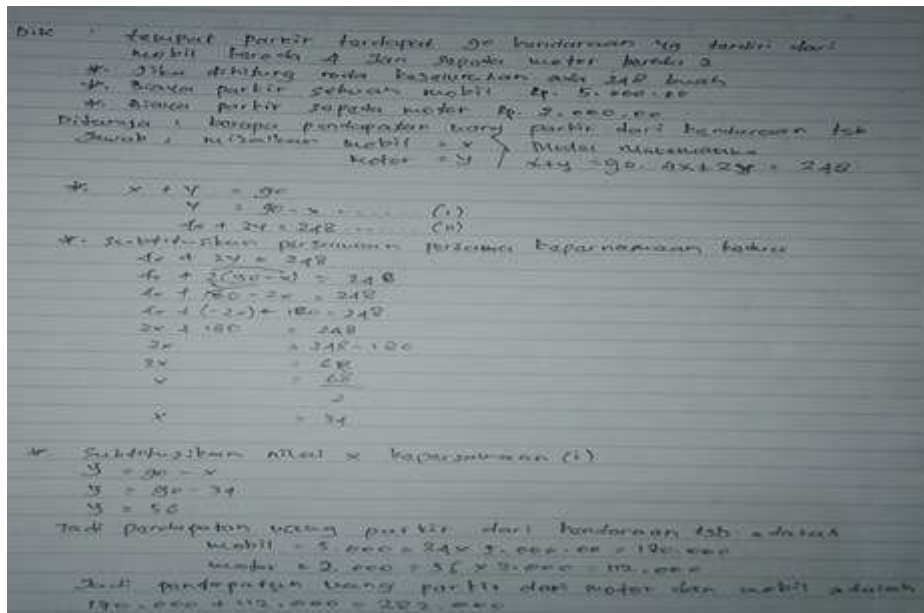 Dik : tempat parkir terdapat 90 kendaraan yg terdiri dari
mobil beroda 4 dan sepeda motor beroda 2
*. Jika dihitung roda keseluruhan ada 248 buah
*. Biaya parkir sebuah mobil Rp. 5.000.00
*. Biaya parkir sepeda motor Rp. 2.000.00
Ditanya : berapa pendapatan uang parkir dari kendaraan tsb
Jawab : misalkan mobil = x } Model Matematika
motor = y x+y = 90. 4x+2y = 248
*. x + y = 90
y = 90 - x ...... (i)
4x + 2y = 248 ...... (ii)
*. Subtitusikan persamaan pertama kepersamaan kedua
4x + 2y = 248
4x + 2(90-x) = 248
4x + 180 - 2x = 248
4x + (-2x) + 180 = 248
2x + 180 = 248
2x = 248 - 180
2x = 68
x = 68
2
x = 34
* Subtitusikan nilai x kepersamaan (i)
y = 90 - x
y = 90 - 34
y = 56
Jadi pendapatan uang parkir dari kendaraan tsb adalah
mobil = 5.000 = 34 x 5.000.00 = 170.000
motor = 2.000 = 56 x 2.000 = 112.000
Jadi pendapatan uang parkir dari motor dan mobil adalah
170.000 + 112.000 = 282.000